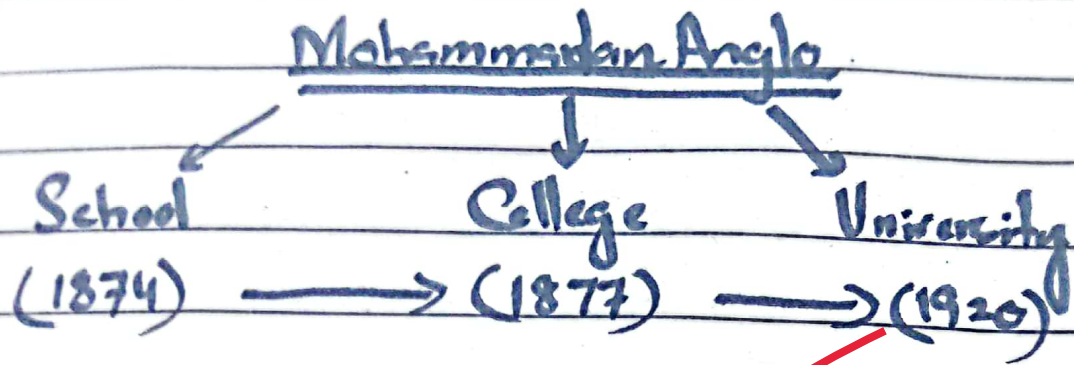 Mohammadan Anglo
School College University
(1874) → (1877) → (1920)